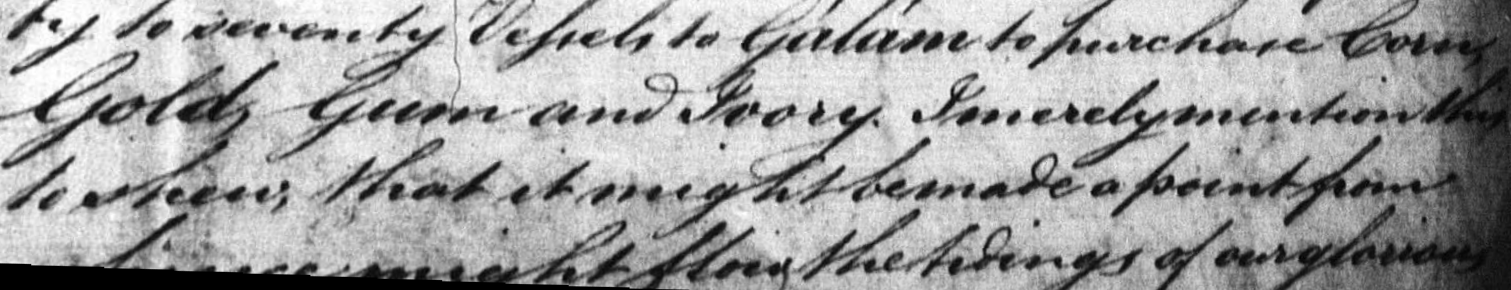 ty to seventy Vessels to Galam to purchase Corn,
Gold, Gum and Ivory. I merely mention this
to shew, that it might be made a point from
might flow, the tidings of our glorious